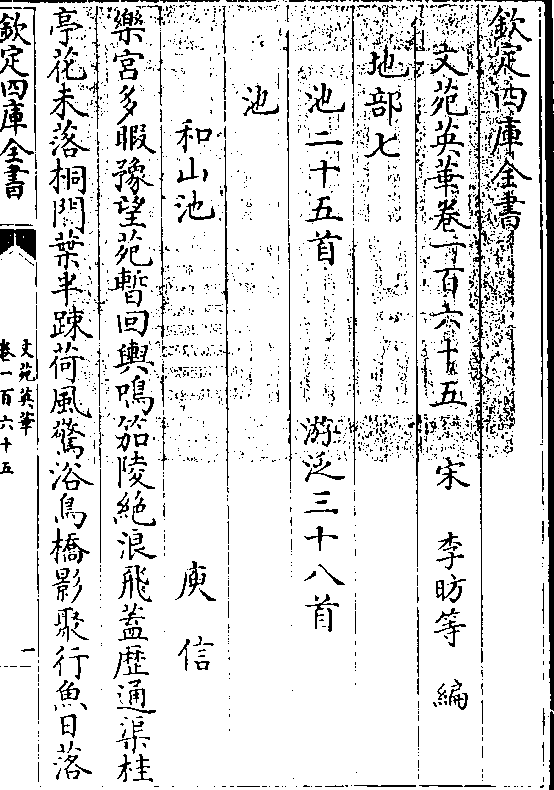 欽定四庫全書
文苑英華卷一百六十五 宋 李昉等 編
地部七
池二十五首 游泛三十八首
池
和山池 庾信
樂宮多暇豫望苑暫回輿鳴笳陵絶浪飛蓋歴通渠桂
亭花未落桐門葉半踈荷風驚浴鳥橋影聚行魚日落
欽定四庫全書
文苑英華
卷一百六十五
一